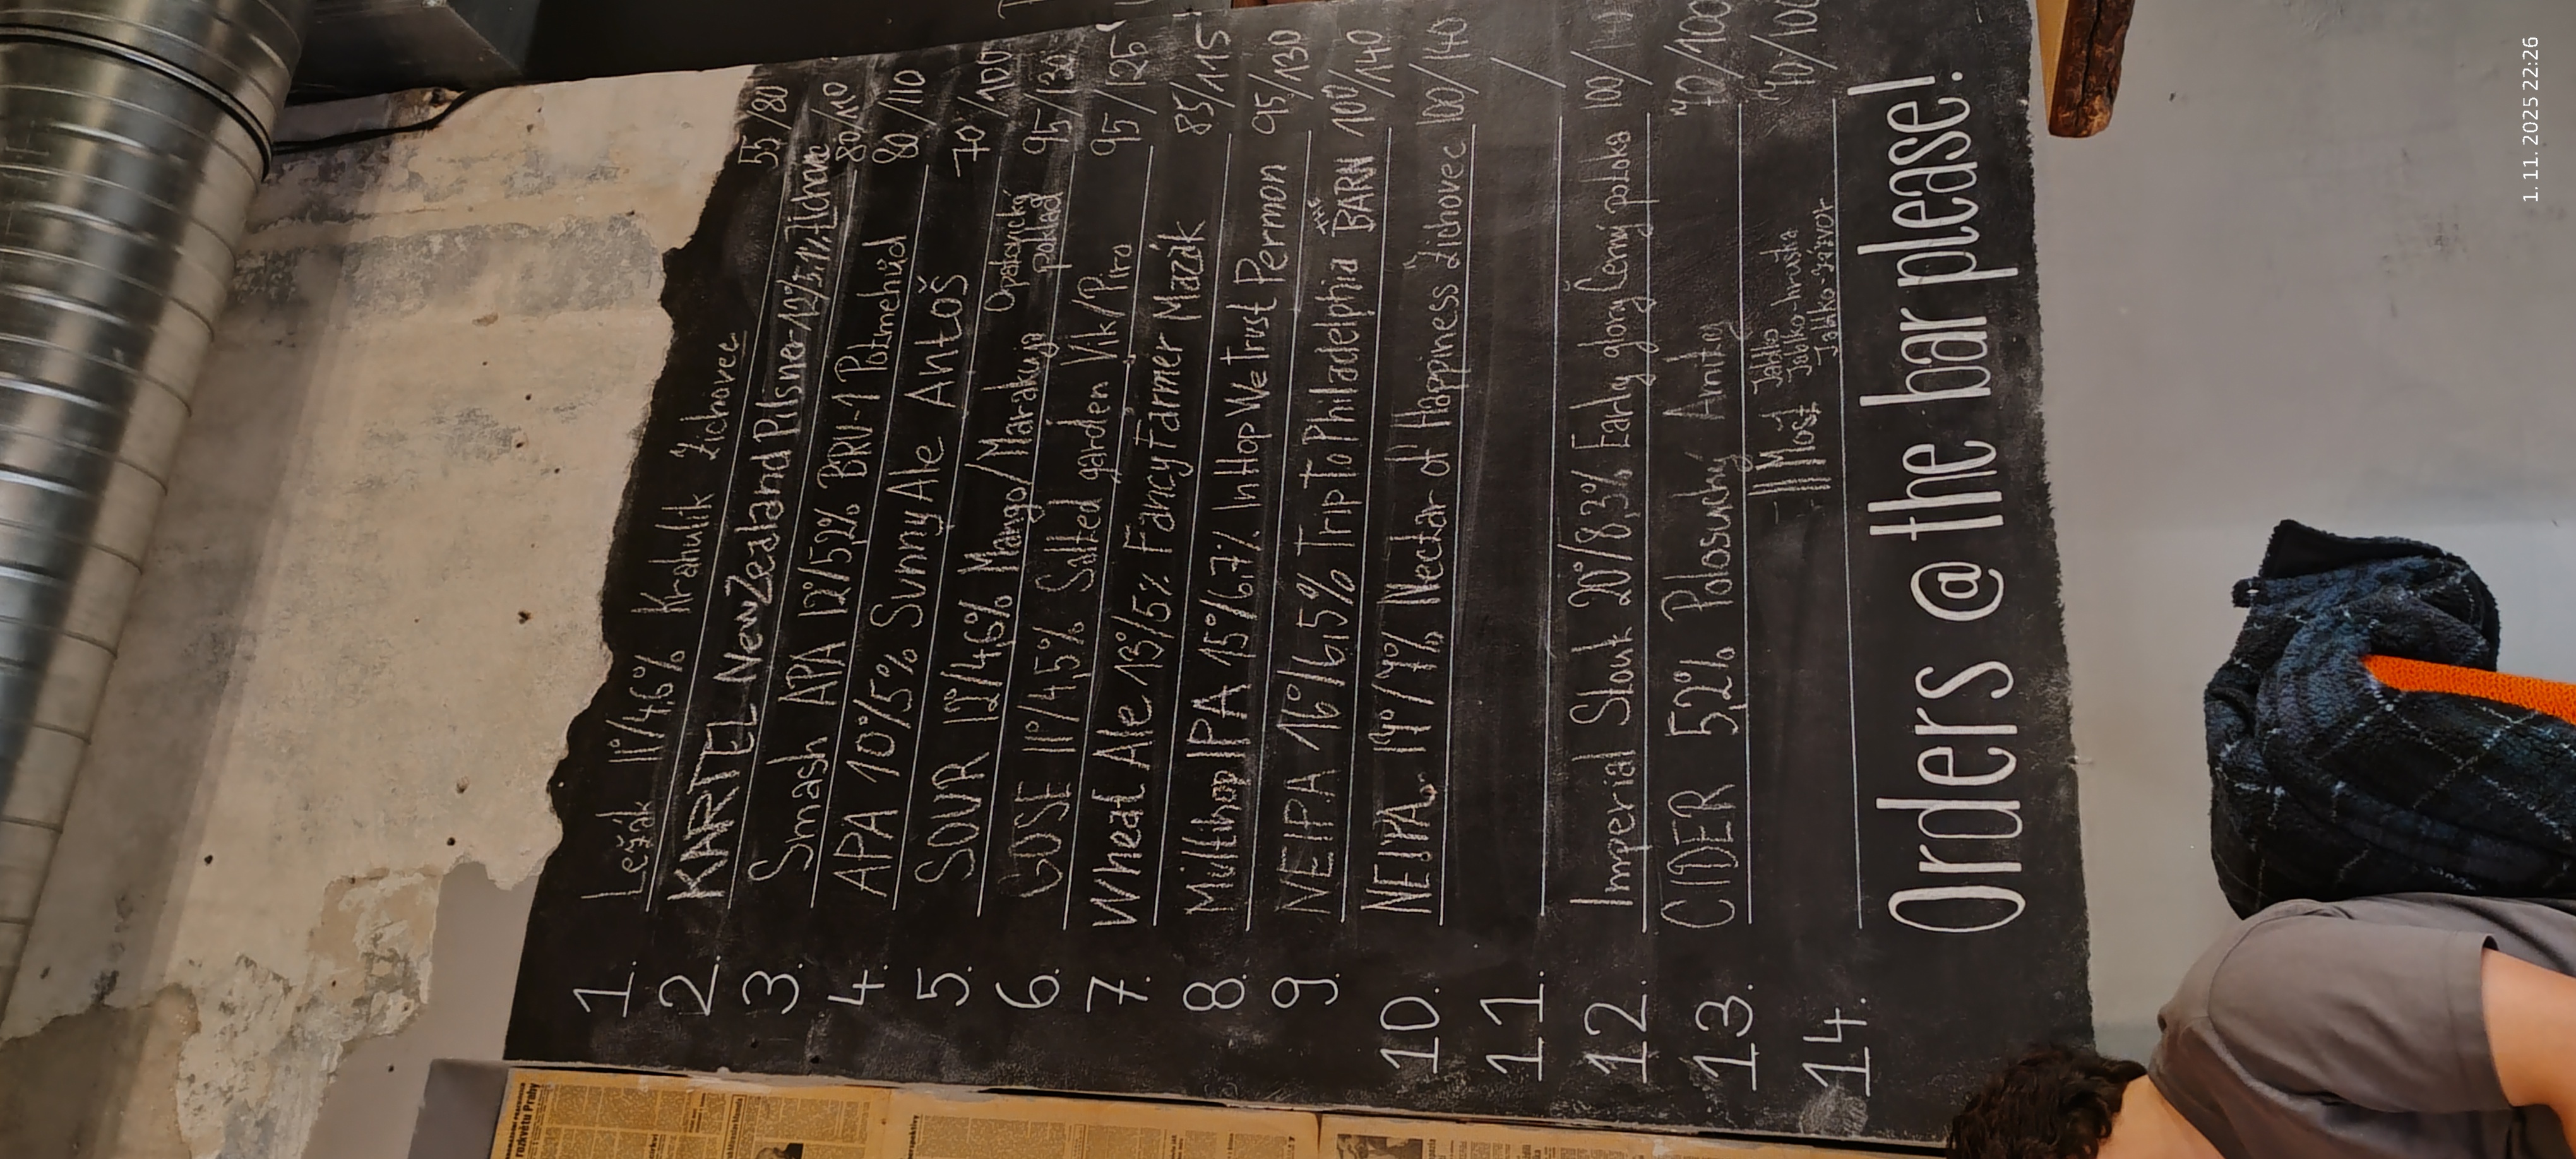 1. Ležák 11°/4,6% Krahulík Zichovec 55/80
2. KARTEL New Zealand Pilsner 12°/5,1% Zichovec 80/110
3. Smash APA 12°/5,2% BRU-1 Potmehüd 80/110
4. APA 10°/5% Sunny Ale Antoš 70/100
5. SOUR 12°/4,6% Mango/Marakuja Opatovický poklad 95/130
6. GOSE 11°/4,5% Salted garden Vik/Piro 95/125
7. Wheat Ale 13°/5% Fancy Farmer Mazák 85/115
8. Multihop IPA 15°/6,7% In Hop We Trust Permon 95/130
9. NEIPA 16°/6,5% Trip To Philadelphia THE BARN 100/140
10. NEIPA 19°/7% Nectar of Happiness Zichovec 100/140
11. /
12. Imperial Stout 20°/8,3% Early glory Černý potoka 100/140
13. CIDER 5,2% Polosuchý Amity 70/100
14. Mošt Jablko 70/100
Jablko-hruška
Jablko-zázvor
Orders @ the bar please!
rozkvětu Prahy
1. 11. 2025 22:26